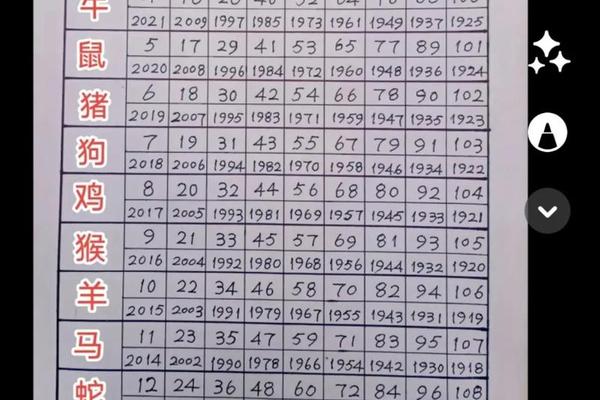 牛
2021 2009 1997 1985 1973 1961 1949 1937 1925
鼠
5 17 29 41 53 65 77 89 101
2020 2008 1996 1984 1972 1960 1948 1936 1924
猪
6 18 30 42 54 66 78 90 102
2019 2007 1995 1983 1971 1959 1947 1935 1923
狗
7 19 31 43 55 67 79 91 103
2018 2006 1994 1982 1970 1958 1946 1934 1922
鸡
8 20 32 44 56 68 80 92 104
2017 2005 1993 1981 1969 1957 1945 1933 1921
猴
9 21 33 45 57 69 81 93 105
2016 2004 1992 1980 1968 1956 1944 1932 1920
羊
10 22 34 46 58 70 82 94 106
2015 2003 1991 1979 1967 1955 1943 1931 1919
马
11 23 35 47 59 71 83 95 107
2014 2002 1990 1978 1966 1954 1942 1930 1918
蛇
12 24 36 48 60 72 84 96 108